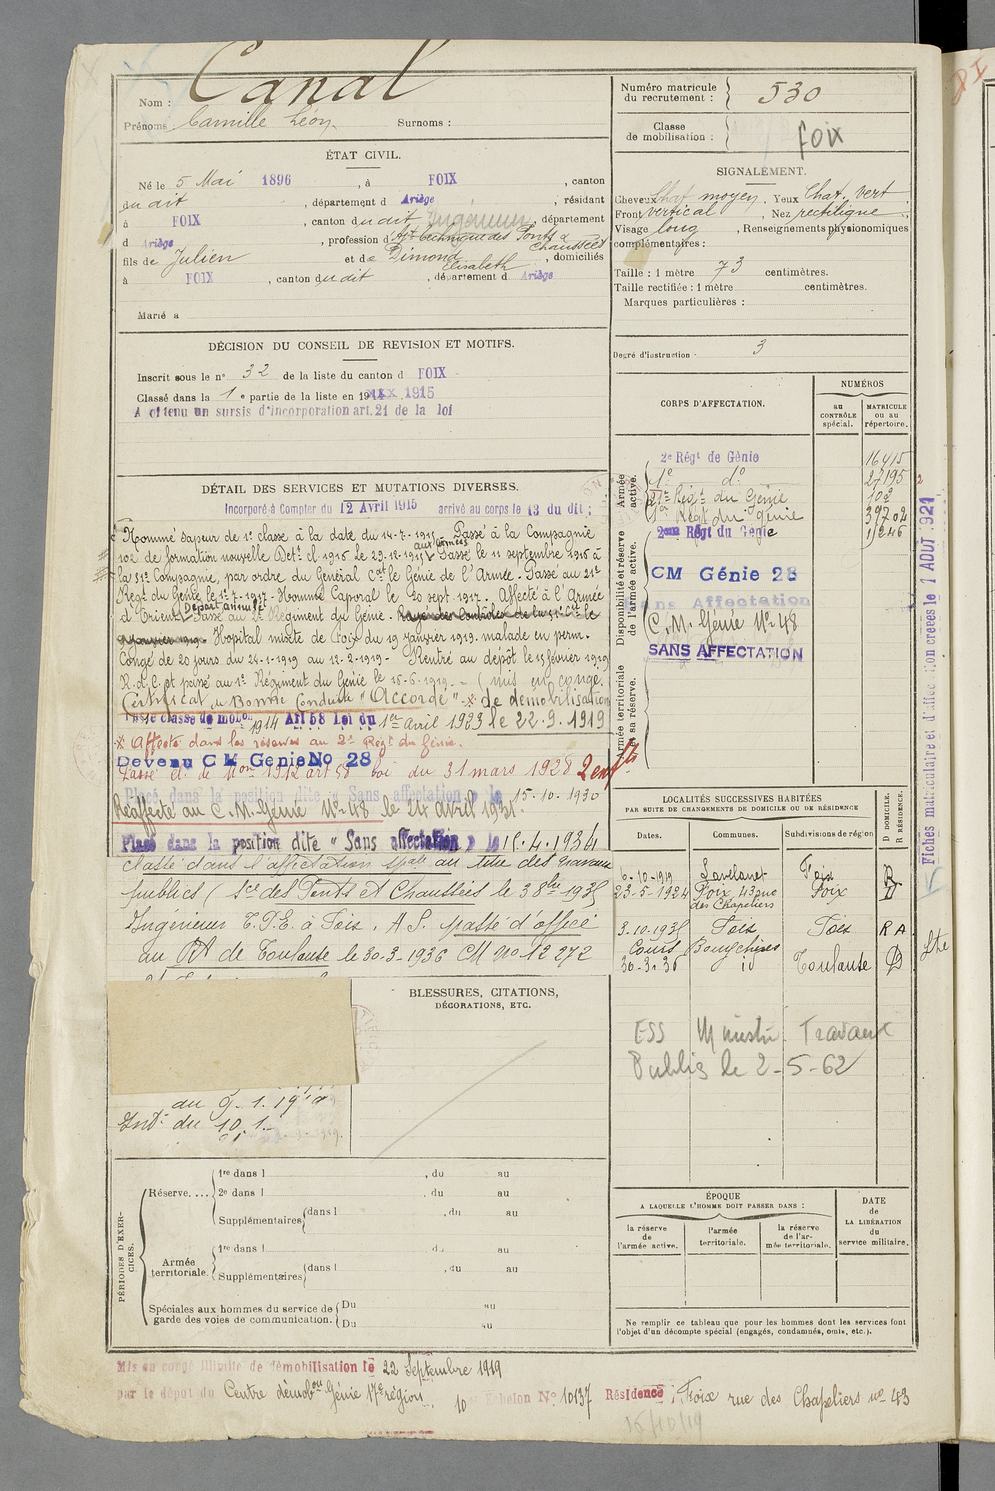 Canal
Nom :
Prénoms Camille Léon Surnoms :
ÉTAT CIVIL.
Né le 5 Mai 1896, à FOIX, canton
du dit, département d Ariège, résidant
à FOIX, canton du dit Ingénieur, département
d Ariège, profession d'Ajt technique des Ponts & Chaussées
fils de Julien et de Dimond Elisabeth, domiciliés
à FOIX, canton du dit, département d Ariège
Marié à
DÉCISION DU CONSEIL DE REVISION ET MOTIFS.
Inscrit sous le n° 32 de la liste du canton d FOIX
Classé dans la 1e partie de la liste en 1914 xxx 1915
A obtenu un sursis d'incorporation art. 21 de la loi
DÉTAIL DES SERVICES ET MUTATIONS DIVERSES.
Incorporé à Compter du 12 Avril 1915 arrivé au corps le 13 du dit ;
Nommé sapeur de 1e classe à la date du 14-7-1915. Passé à la Compagnie
102 de formation nouvelle Dett: el 1915 le 29.12.1915 aux armées Passé le 11 septembre 1915 à
la 51e Compagnie, par ordre du Général Cdt le Génie de l'Armée. Passé au 21e
Régt du Génie le 1er-7-1917. Nommé Caporal le 20 sept. 1917. Affecté à l'Armée
d'Orient Départ annulé Passé au 2e Régiment du Génie.
Hopital mixte de Foix du 19 Janvier 1919. malade en perm.
Congé de 20 jours du 24-1-1919 au 12-2-1919 - Rentré au dépôt le 15 février 1919
R.d.C. et passé au 1er Régiment du Génie le 15-6-1919 - (mis en congé
Certificat de Bonne Conduite "Accordé" - de démobilisation
classe de mobon 1914 Art 58 Loi du 1er Avril 1923 le 22.9.1919
* Affecté dans les réserves au 2e Régt du Génie.
Devenu C M Genie No 28
Passé cl. de Mon 1912 art 58 loi du 31 mars 1928
Placé dans la position dite " Sans affectation " le 15-10-1930
Réaffecté au C.M. Génie N° 48 le 24 avril 1931.
Placé dans la position dite " Sans affectation " le 15.4.1934
Classé dans l'affectation spale au titre des travaux
publics (Sce des Ponts et Chaussées le 3 8bre 1935
Ingénieur T.P.E. à Foix. A.S. passé d'office
au RA de Toulouse le 30-3-1936 CM No 12 272
BLESSURES, CITATIONS,
DÉCORATIONS, ETC.
du 9.1.19
Indt du 10.1
PÉRIODES D'EXERCICES.
Réserve.... 1re dans l , du au
2e dans l , du au
Supplémentaires dans l , du au
Armée territoriale. 1re dans l du au
Supplémentaires dans l , du au
Spéciales aux hommes du service de garde des voies de communication. Du au
Du au
Numéro matricule du recrutement : 530
Classe de mobilisation : foix
SIGNALEMENT.
Cheveux Chat moyen. Yeux Chat. vert.
Front vertical, Nez rectiligne,
Visage long, Renseignements physionomiques
complémentaires :
Taille : 1 mètre 73 centimètres.
Taille rectifiée : 1 mètre centimètres.
Marques particulières :
Degré d'instruction 3
CORPS D'AFFECTATION.
NUMÉROS
au CONTRÔLE spécial.
MATRICULE ou au répertoire.
Armée active.
2e Régt de Génie 16415
1e do 27195
21e Régt du Génie 102
1er Régt du génie 39702
2eme Régt du Genie 1246
Disponibilité et réserve de l'armée active.
CM Génie 28
Sans Affectation
C.M. Genie N° 48
SANS AFFECTATION
Armée territoriale et sa réserve.
Fiches matriculaire et d'affectation créées le 1 AOUT 1921
LOCALITÉS SUCCESSIVES HABITÉES
PAR SUITE DE CHANGEMENTS DE DOMICILE OU DE RÉSIDENCE
Dates. Communes. Subdivisions de région
D DOMICILE.
R RÉSIDENCE.
6-10-1919 Lavelanet Foix R
23-5-1924 Foix, 43 rue des Chapeliers Foix D
3.10.1935 Foix Foix R A
Cours Bouychères
30-3.36 id Toulouse D
ESS Ministr. Travaux
Publics le 2-5-62
ÉPOQUE
A LAQUELLE L'HOMME DOIT PASSER DANS :
la réserve de l'armée active.
l'armée territoriale.
la réserve de l'armée territoriale.
DATE
de
LA LIBÉRATION
du
service militaire.
Ne remplir ce tableau que pour les hommes dont les services font
l'objet d'un décompte spécial (engagés, condamnés, omis, etc.).
Mis en congé illimité de démobilisation le 22 Septembre 1919
par le dépôt du Centre démobon Génie 17e région. 10e Echelon N° 10137 Résidence : Foix rue des Chapeliers n° 43